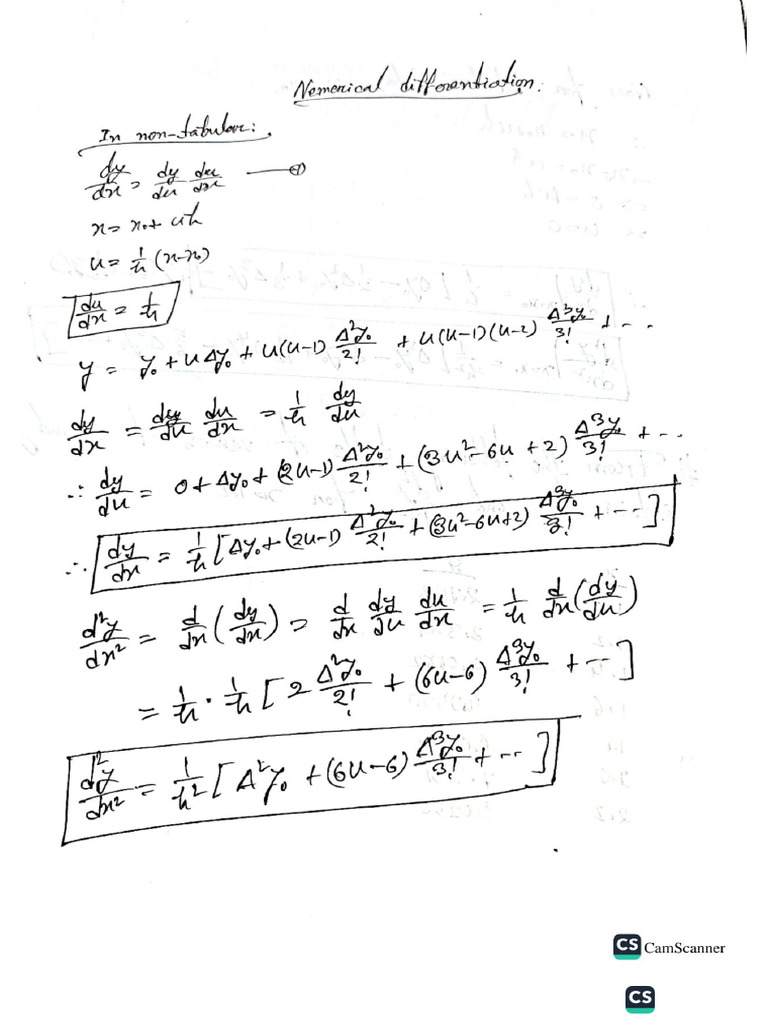 Nemerical differentiation:
In non-tabular:
dy/dx = dy/du du/dx —— ①
x = x₀ + uh
u = 1/h (x-x₀)
du/dx = 1/h
y = y₀ + uΔy₀ + u(u-1) Δ²y₀/2! + u(u-1)(u-2) Δ³y₀/3! + ...
dy/dx = dy/du du/dx = 1/h dy/du
∴ dy/du = 0 + Δy₀ + (2u-1) Δ²y₀/2! + (3u²-6u+2) Δ³y₀/3! + ...
∴ dy/dx = 1/h [Δy₀ + (2u-1) Δ²y₀/2! + (3u²-6u+2) Δ³y₀/3! + ...]
d²y/dx² = d/dx (dy/dx) = d/dx dy/du du/dx = 1/h d/dx (dy/du)
= 1/h · 1/h [2 Δ²y₀/2! + (6u-6) Δ³y₀/3! + ...]
d²y/dx² = 1/h² [Δ²y₀ + (6u-6) Δ³y₀/3! + ...]
CS CamScanner
CS